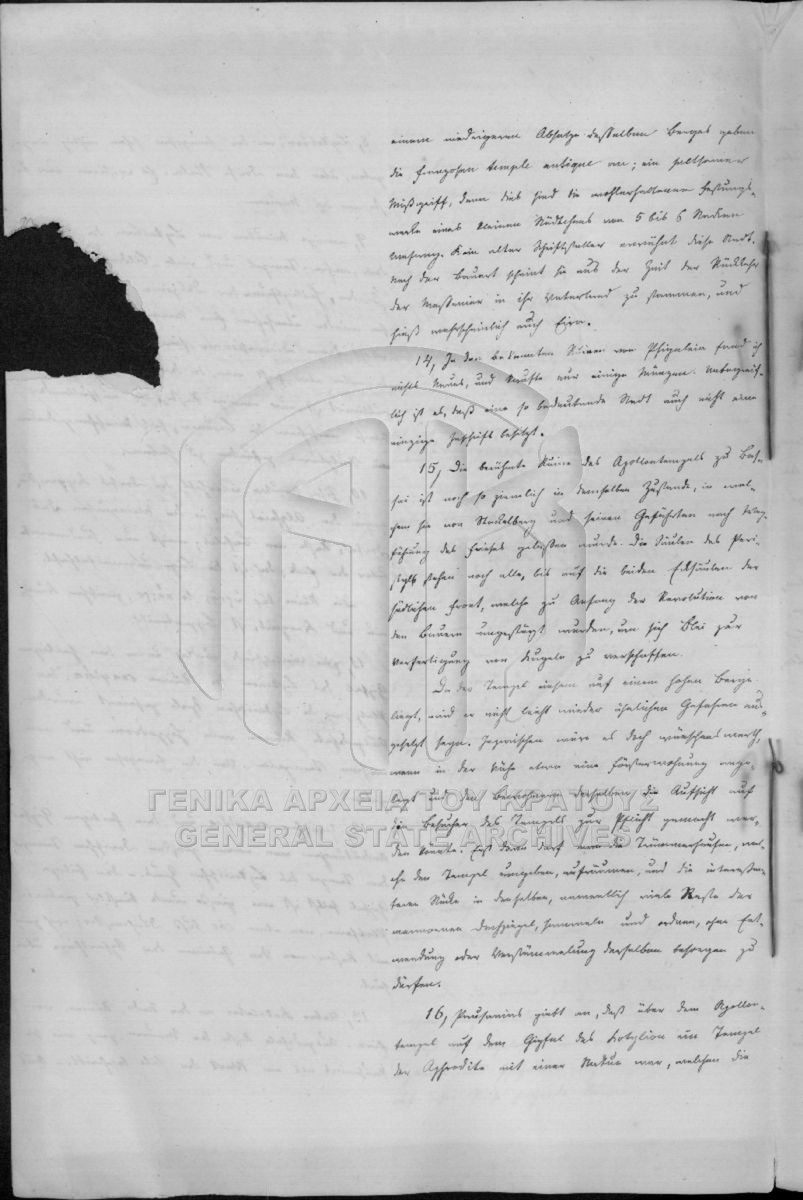 einem niedrigeren Absatze desselben Berges geben
die Franzosen temple antique an; ein seltsamer
Mißgriff, denn dies sind die wohlerhaltenen Festungs-
werke eines kleinen Städtchens von 5 bis 6 Stadien
Umfang. Kein alter Schriftsteller erwähnt diese Stadt.
Nach der Bauart scheint sie aus der Zeit der Rückkehr
der Messenier in ihr Vaterland zu stammen, und
hieß wahrscheinlich auch Eira.
14, In den bekannten Ruinen von Phigaleia fand ich
nichts Neues, und kaufte nur einige Münzen. Unbegreif-
lich ist es, daß eine so bedeutende Stadt auch nicht eine
einzige Inschrift besitzt.
15, Die berühmte Ruine des Apollontempels zu Bas-
sai ist noch so ziemlich in demselben Zustande, in wel-
chem sie von Stackelberg und seinen Gefährten nach Weg-
führung des Frieses gelassen wurde. Die Säulen des Peri-
styls stehen noch alle, bis auf die beiden Ecksäulen der
südlichen Front, welche zu Anfang der Revolution von
den Bauern umgestürzt wurden, um sich Blei zur
Verfertigung von Kugeln zu verschaffen.
Da der Tempel einsam auf einem hohen Berge
liegt, wird er nicht leicht wieder ähnlichen Gefahren aus-
gesetzt seyn. Inzwischen wäre es doch wünschenswerth,
wenn in der Nähe etwa eine Försterwohnung ange-
legt und den Bewohnern derselben die Aufsicht auf
die Besucher des Tempels zur Pflicht gemacht wer-
den könnte. Erst dann darf man die Trümmerhaufen, wel-
che den Tempel umgeben, aufräumen, und die interessan-
teren Stücke in denselben, namentlich viele Reste der
marmornen Dachziegel, sammeln und ordnen, ohne Ent-
wendung oder Verstümmelung derselben besorgen zu
dürfen.
16, Pausanias giebt an, daß über dem Apollon-
tempel auf dem Gipfel des Kotylion ein Tempel
der Aphrodite mit einer Statue war, welchen die
ΓΕΝΙΚΑ ΑΡΧΕΙΑ ΤΟΥ ΚΡΑΤΟΥΣ
GENERAL STATE ARCHIVES